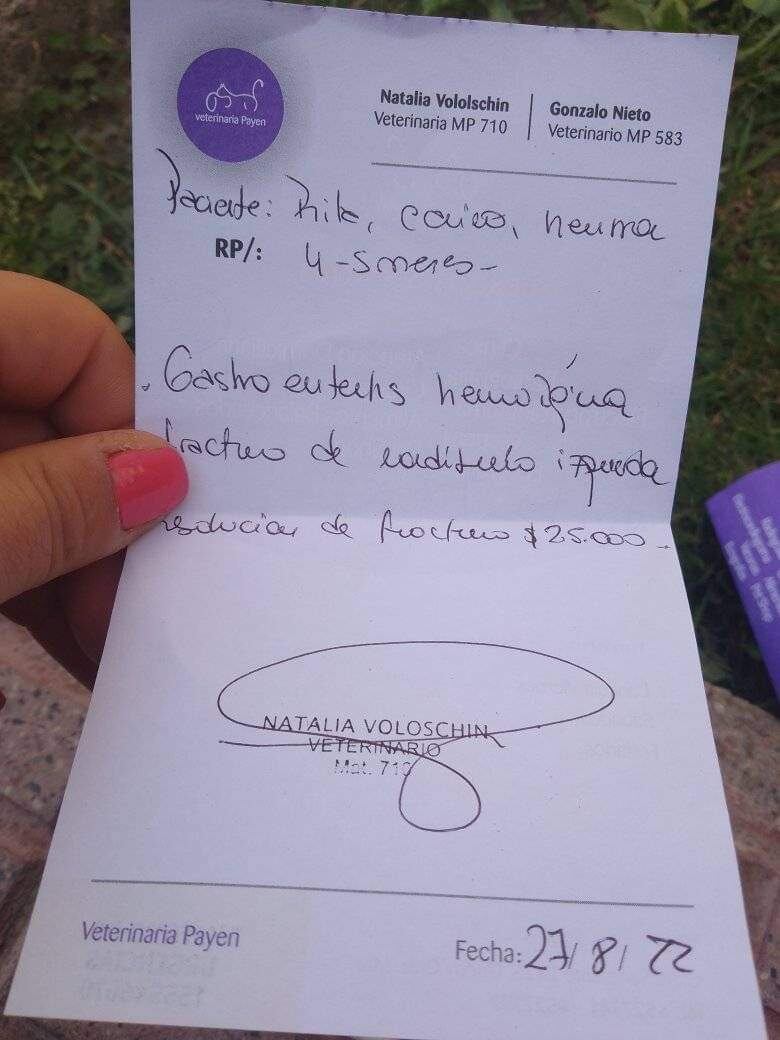 veterinaria Payen
Natalia Vololschin
Veterinaria MP 710
Gonzalo Nieto
Veterinario MP 583
Paciente: canino,
RP/: 4-5 meses-
. Gastroenteritis hemorrágica
fractura de izquierda
resolucion de fractura $25.000.-
NATALIA VOLOSCHIN
VETERINARIO
Mat. 710
Veterinaria Payen
Fecha: 27/8/22
Pet Shop